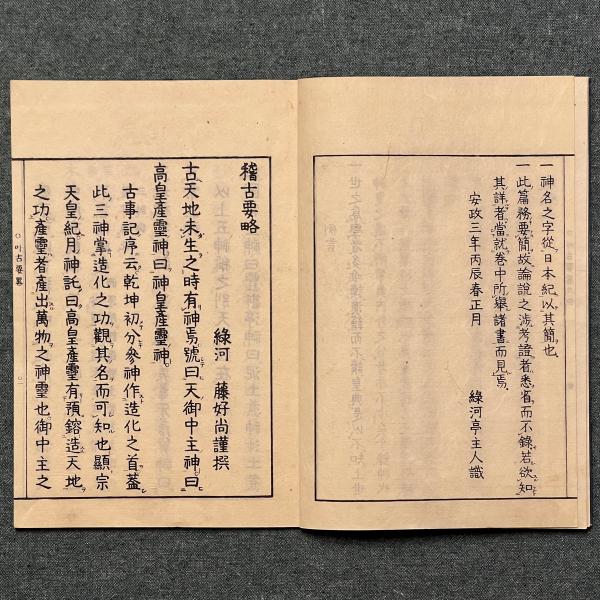 一神名之字從日本紀以其簡也
一此篇務要簡故論說之涉考證者悉省而不錄若欲知
其詳者當就卷中所擧諸書而見焉
安政三年丙辰春正月
綠河亭主人識
稽古要略
綠河 藤好尚謹撰
古天地未生之時有神焉號曰天御中主神曰
高皇產靈神曰神皇產靈神
古事記序云乾坤初分參神作造化之首蓋
此三神掌造化之功觀其名而可知也顯宗
天皇紀月神託曰高皇產靈有預鎔造天地
之功產靈者產出萬物之神靈也御中主之